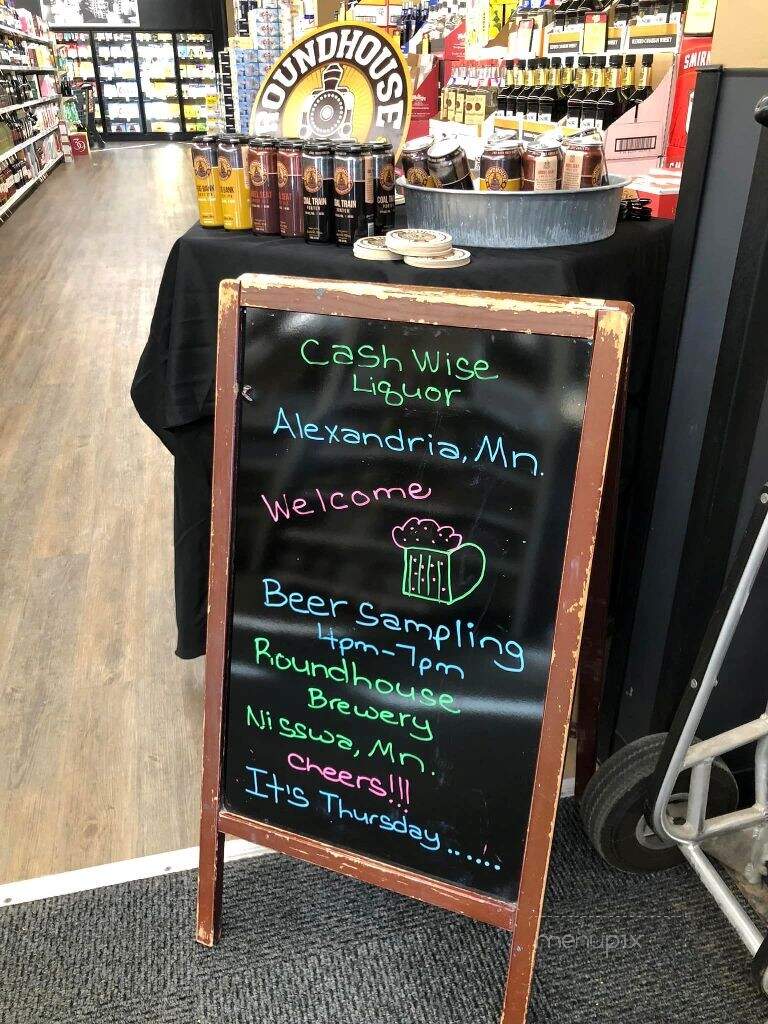 ROUNDHOUSE
SMIRN
COAL TRAIN
PORTER
COAL TRAIN
PORTER
Cash Wise
Liquor
Alexandria, Mn.
Welcome
Beer Sampling
4pm-7pm
Roundhouse
Brewery
Nisswa, Mn.
Cheers!!!
It's Thursday......
menupix